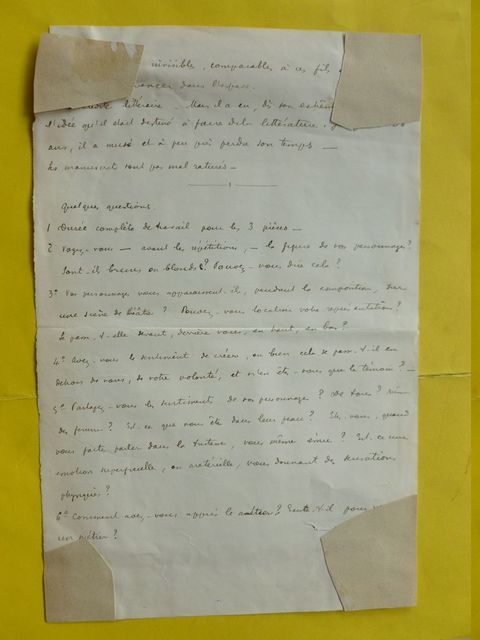 invisibles, comparables à ces fils
dans l'espace.
littéraire. Mais il a eu, dès son
l'idée qu'il était destiné à faire de la littérature.
ans, il a musé et à peu près perdu son temps —
Les manuscrits sont pas mal raturés —
Quelques questions.
1 Durée complète de travail pour les 3 pièces —
2 Voyez-vous — avant les répétitions, — la figure de vos personnages?
Sont-ils bruns ou blonds? Pouvez-vous dire cela?
3° Vos personnages vous apparaissent-ils, pendant la composition, sur
une scène de théâtre? Pouvez-vous localiser votre représentation?
Se passe-t-elle devant, derrière vous, en haut, en bas?
4° Avez-vous le sentiment de créer, ou bien cela se passe-t-il en
dehors de vous, de votre volonté, et n'en êtes-vous que le témoin? —
5° Partagez-vous les sentiments de vos personnages? De tous?
des femmes? Est-ce que vous êtes dans leur peau? Etes-vous, quand
vous faites parler dans la vous même émue? Est-ce une
émotion superficielle, ou artérielle, vous donnant des sensations
physiques?
6° Comment avez-vous appris le métier? Existe-t-il pour
un métier?